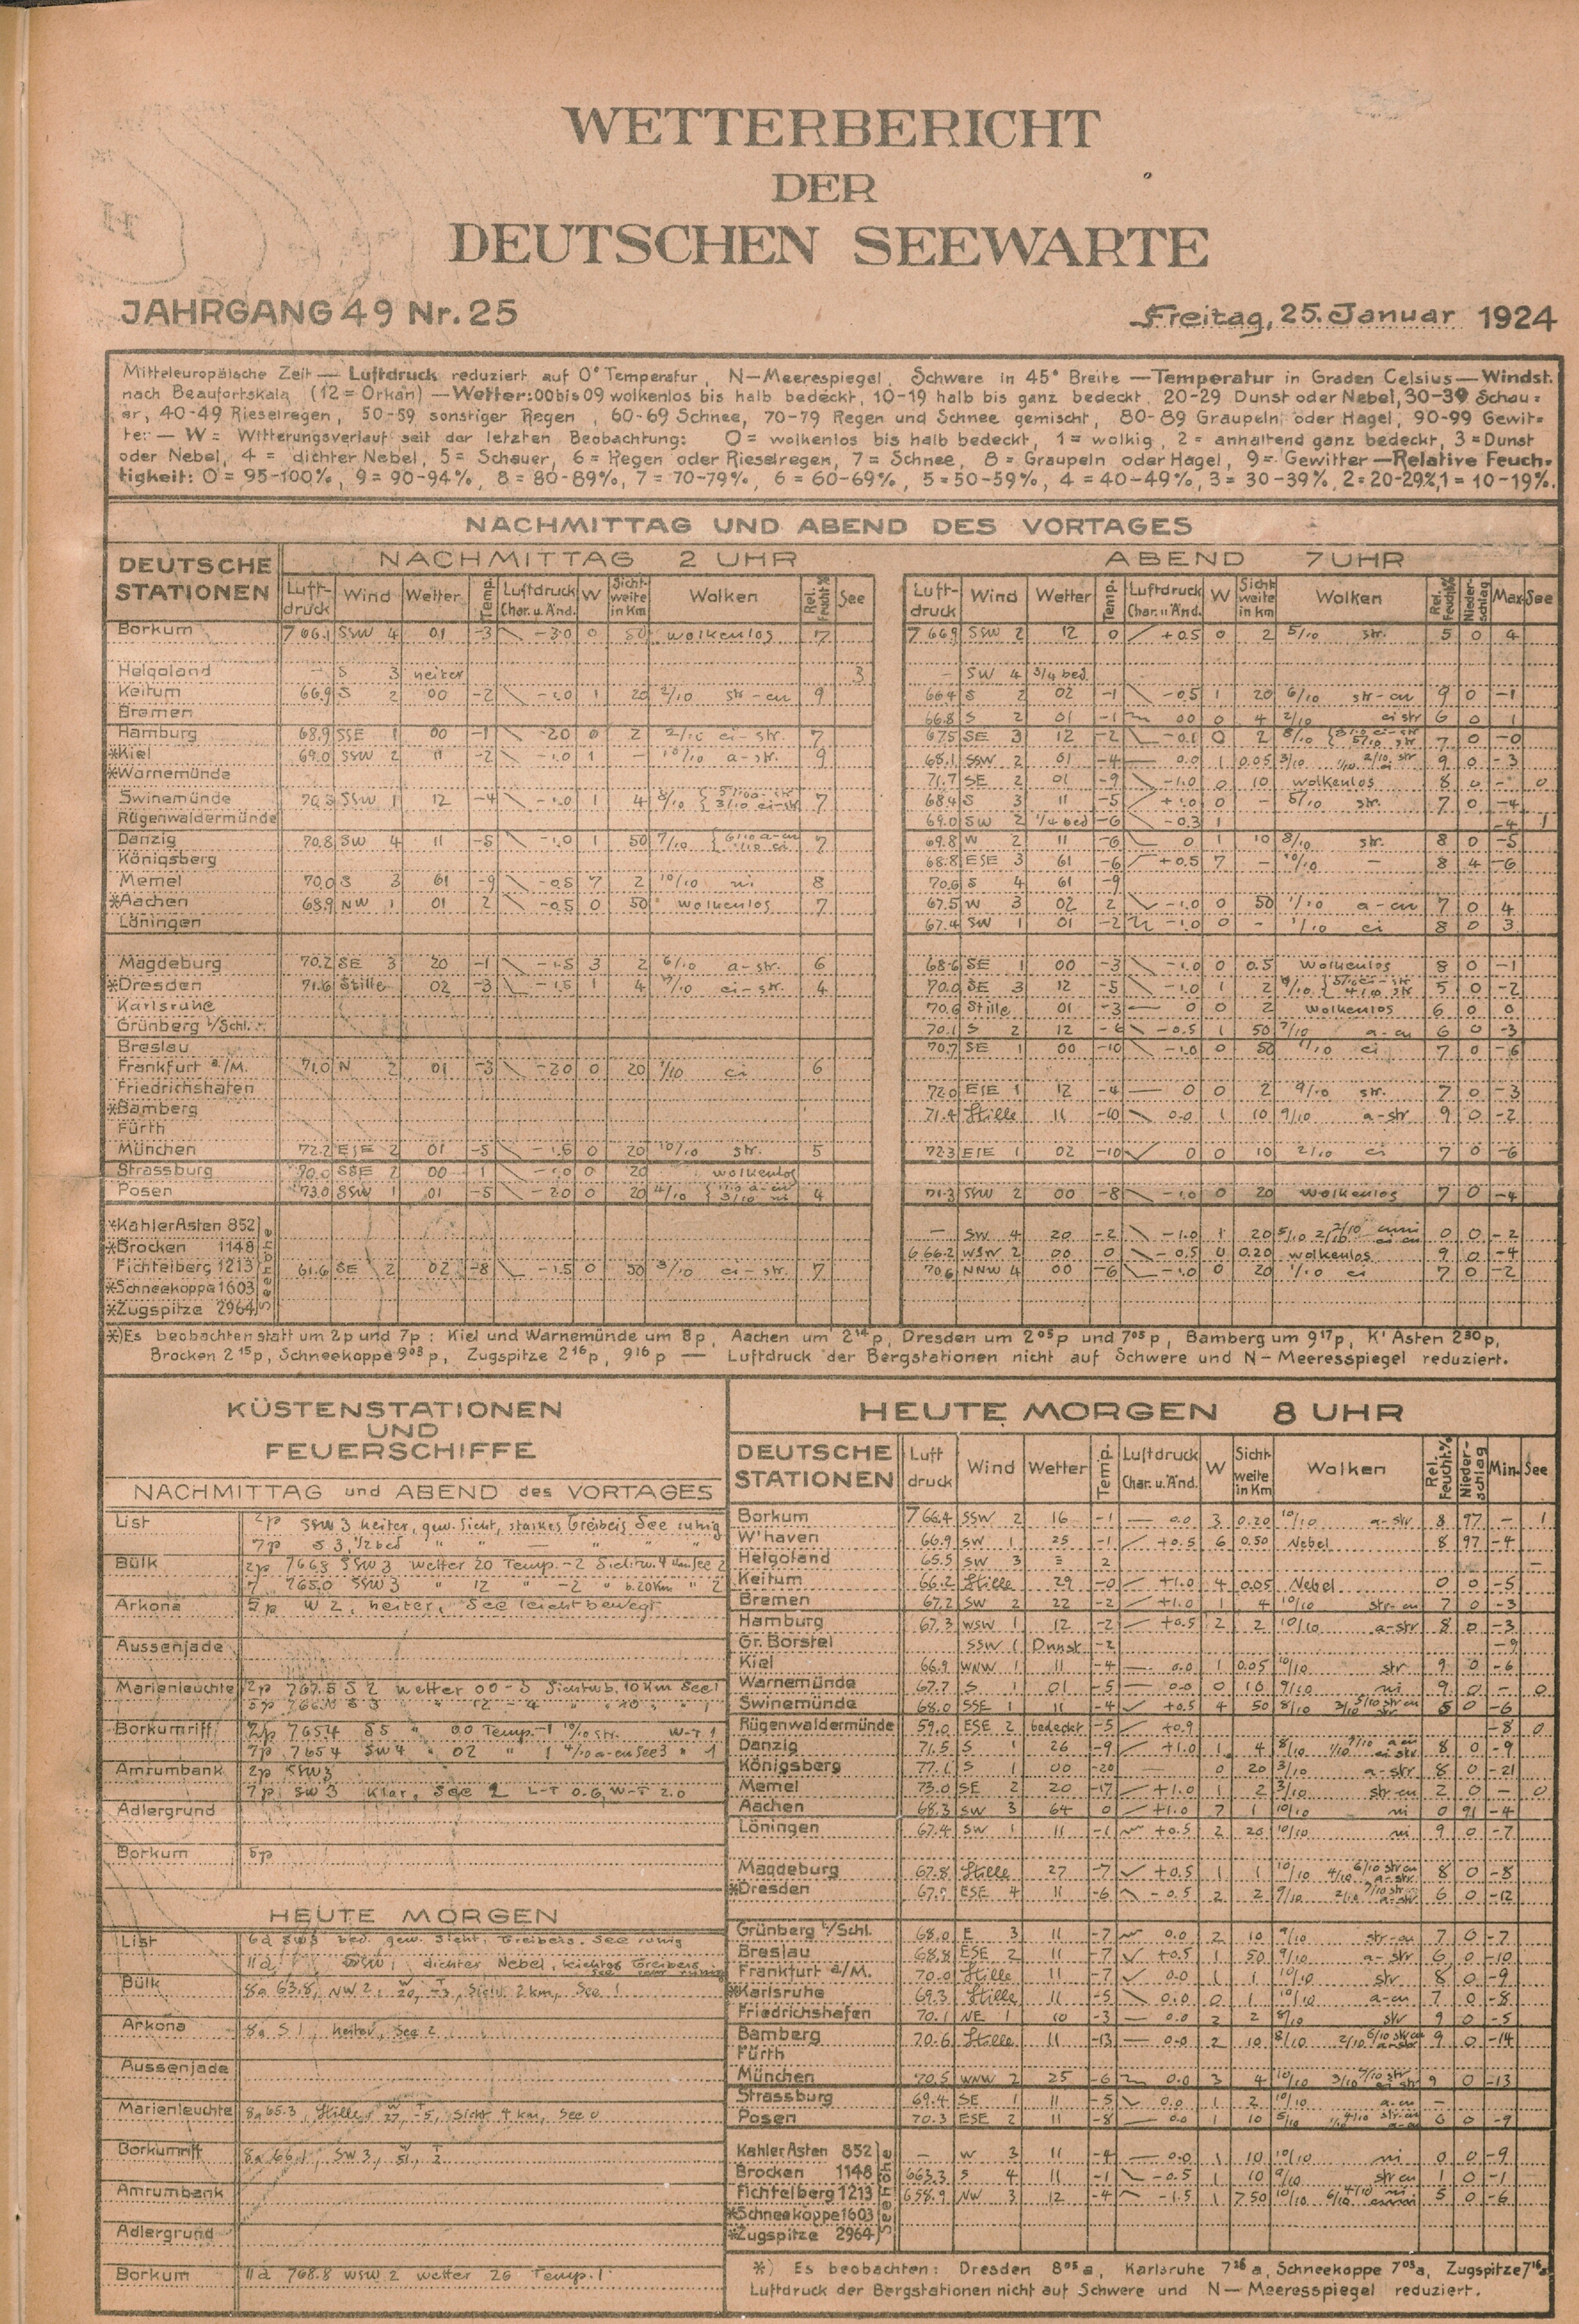 WETTERBERICHT
DER
DEUTSCHEN SEEWARTE
JAHRGANG 49 Nr. 25 Freitag, 25. Januar 1924
Mitteleuropäische Zeit — Luftdruck reduziert auf 0° Temperatur, N—Meerespiegel, Schwere in 45° Breite — Temperatur in Graden Celsius — Windst.
nach Beaufortskala (12 = Orkan) — Wetter: 00 bis 09 wolkenlos bis halb bedeckt, 10-19 halb bis ganz bedeckt, 20-29 Dunst oder Nebel, 30-39 Schau=
er, 40-49 Rieselregen, 50-59 sonstiger Regen, 60-69 Schnee, 70-79 Regen und Schnee gemischt, 80-89 Graupeln oder Hagel, 90-99 Gewit=
ter — W = Witterungsverlauf seit der letzten Beobachtung: 0 = wolkenlos bis halb bedeckt, 1 = wolkig, 2 = anhaltend ganz bedeckt, 3 = Dunst
oder Nebel, 4 = dichter Nebel, 5 = Schauer, 6 = Regen oder Rieselregen, 7 = Schnee, 8 = Graupeln oder Hagel, 9 = Gewitter — Relative Feuch=
tigkeit: 0 = 95-100%, 9 = 90-94%, 8 = 80-89%, 7 = 70-79%, 6 = 60-69%, 5 = 50-59%, 4 = 40-49%, 3 = 30-39%, 2 = 20-29%, 1 = 10-19%.
NACHMITTAG UND ABEND DES VORTAGES
DEUTSCHE STATIONEN NACHMITTAG 2 UHR ABEND 7 UHR
Luft-druck Wind Wetter Temp. Luftdruck Char. u. Änd. W Sicht-weite in Km Wolken Rel. Feucht% See Luft-druck Wind Wetter Temp. Luftdruck Char. u. Änd. W Sicht-weite in Km Wolken Rel. Feucht% Nieder-schlag Max. See
Borkum 766.1 SSW 4 01 -3 -3.0 0 50 wolkenlos 766.9 SSW 2 12 0 +0.5 0 2 5/10 str. 5 0 4
Helgoland — S 3 heiter 3 — SW 4 3/4 bed.
Keitum 66.9 S 2 00 -2 -1.0 1 20 2/10 str-cu 9 66.4 S 2 02 -1 -0.5 1 20 6/10 str-cu 9 0 -1
Bremen 66.8 S 2 01 -1 0.0 0 4 2/10 ci str 6 0 1
Hamburg 68.9 SSE 1 00 -1 -2.0 0 2 2/10 ci-str. 7 67.5 SE 3 12 -2 -0.1 0 2 8/10 7 0 -0
*Kiel 69.0 SSW 2 11 -2 -1.0 1 — 10/10 a-str. 9 68.1 SSW 2 01 -4 — 0.0 1 0.05 3/10 9 0 -3
*Warnemünde 71.7 SE 2 01 -9 -1.0 0 10 wolkenlos 8 0 - 0
Swinemünde SSW 1 12 -4 -1.0 1 4 8/10 7 68.4 S 3 11 -5 +1.0 0 - 5/10 str. 7 0 -4
Rügenwaldermünde 69.0 SW 2 1/4 bed -6 -0.3 1 -4 1
Danzig 70.8 SW 4 11 -5 -1.0 1 50 7/10 7 69.8 W 2 11 -6 0 1 10 8/10 str. 8 0 -5
Königsberg 68.8 ESE 3 61 -6 +0.5 7 - 10/10 — 8 4 -6
Memel 70.0 S 3 61 -9 -0.5 7 2 10/10 ni 8 70.6 S 4 61 -9
*Aachen 68.9 NW 1 01 2 -0.5 0 50 wolkenlos 7 67.5 W 3 02 2 -1.0 0 50 1/10 a-cu 7 0 4
Löningen 67.4 SW 1 01 -2 -1.0 0 - 1/10 ci 8 0 3
Magdeburg 70.2 SE 3 20 -1 -1.5 3 2 6/10 a-str. 6 68.6 SE 1 00 -3 -1.0 0 0.5 wolkenlos 8 0 -1
*Dresden 71.6 Stille 02 -3 -1.5 1 4 ci-str. 4 70.0 SE 3 12 -5 -1.0 1 2 9/10 5 0 -2
Karlsruhe 70.6 Stille 01 -3 — 0 0 2 wolkenlos 6 0 0
Grünberg i/Schl. 70.1 S 2 12 -6 -0.5 1 50 7/10 a-cu 6 0 -3
Breslau 70.7 SE 1 00 -10 -1.0 0 50 1/10 ci 7 0 -6
Frankfurt a/M. 71.0 N 2 01 -3 -2.0 0 20 1/10 ci 6
Friedrichshafen 72.0 ESE 1 12 -4 — 0 0 2 9/10 str. 7 0 -3
*Bamberg 71.4 Stille 11 -10 0.0 1 10 9/10 a-str 9 0 -2
Fürth
München 72.2 ESE 2 01 -5 -1.6 0 20 10/10 str. 5 72.3 ESE 1 02 -10 0 0 10 2/10 ci 7 0 -6
Strassburg 70.0 SSE 2 00 1 -1.0 0 20 wolkenlos
Posen 73.0 SSW 1 01 -5 -2.0 0 20 4/10 4 71.3 SSW 2 00 -8 -1.0 0 20 wolkenlos 7 0 -4
*Kahler Asten 852 — SW 4 20 -2 -1.0 1 20 5/10 0 0 -2
*Brocken 1148 666.2 WSW 2 00 0 -0.5 0 0.20 wolkenlos 9 0 -4
Fichtelberg 1213 61.6 SE 2 02 -8 -1.5 0 50 3/10 ci-str. 7 70.6 NNW 4 00 -6 -1.0 0 20 1/10 ci 7 0 -2
*Schneekoppe 1603
*Zugspitze 2964
Seehöhe
*) Es beobachten statt um 2p und 7p: Kiel und Warnemünde um 8p, Aachen um 2 14 p, Dresden um 2 05 p und 7 05 p, Bamberg um 9 17 p, K' Asten 2 30 p,
Brocken 2 15 p, Schneekoppe 9 03 p, Zugspitze 2 16 p, 9 16 p — Luftdruck der Bergstationen nicht auf Schwere und N—Meeresspiegel reduziert.
KÜSTENSTATIONEN
UND
FEUERSCHIFFE
NACHMITTAG und ABEND des VORTAGES
List 2p SSW 3 heiter, gew. Sicht, starkes Treibeis See ruhig
7p S 3, 1/2 bed " " — " " "
Bülk 2p 766.3 SSW 3 wetter 20 Temp. -2 Sichtw. 4 km See 2
7 765.0 SSW 3 " 12 " -2 " 6.20 Km " 2
Arkona 5p W 2, heiter, See leicht bewegt
Aussenjade
Marienleuchte 2p 767.5 S 2 wetter 00 -3 Sichtwb. 10 Km See 1
Borkumriff 2p 765.4 S 5 " 00 Temp. -1 10/10 str. W-T 1
7p 765.4 SW 4 " 02 " 1 4/10 a-cu See 3 " 1
Amrumbank 2p SSW 3
7p SW 3 klar, See 2 L-T 0.6, W-T 2.0
Adlergrund
Borkum 5p
HEUTE MORGEN
List 6a SW 3 bed. gew. Sicht, Treibeis. See ruhig
11a dichter Nebel, leichtes Treibeis
Bülk 8a 63.8, NW 2, W 20, T -3, Sichtw. 2 km, See 1
Arkona 8a S 1, heiter, See 2
Aussenjade
Marienleuchte 8a 65.3, Stille, W 27, T -5, Sicht 4 km, See 0
Borkumriff 8a 66.1, SW 3, W 51, T 2
Amrumbank
Adlergrund
Borkum 11a 768.8 WSW 2 wetter 26 Temp. 1
HEUTE MORGEN 8 UHR
DEUTSCHE STATIONEN Luft druck Wind Wetter Temp. Luftdruck Char. u. Änd. W Sicht-weite in Km Wolken Rel. Feucht.% Nieder-schlag Min. See
Borkum 766.4 SSW 2 16 -1 — 0.0 3 0.20 10/10 a-str 8 97 — 1
W'haven 66.9 SW 1 25 -1 +0.5 6 0.50 Nebel 8 97 -4
Helgoland 65.5 SW 3 ≡ 2 —
Keitum 66.2 Stille 29 -0 +1.0 4 0.05 Nebel 0 0 -5
Bremen 67.2 SW 2 22 -2 +1.0 1 4 10/10 str-cu 7 0 -3
Hamburg 67.3 WSW 1 12 -2 +0.5 2 2 10/10 a-str 8 0 -3
Gr. Borstel SSW 1 Dunst -2 -9
Kiel 66.9 WNW 1 11 -4 — 0.0 1 0.05 10/10 str 9 0 -6
Warnemünde 67.7 S 1 01 -5 — 0.0 0 10 9/10 ni 9 0 - 0
Swinemünde 68.0 SSE 1 11 -4 +0.5 4 50 8/10 0 -6
Rügenwaldermünde 59.0 ESE 2 bedeckt -5 +0.9 -8 0
Danzig 71.5 S 1 26 -9 +1.0 1 4 8/10 8 0 -9
Königsberg 77.1 S 1 00 -20 — 0 20 3/10 a-str 8 0 -21
Memel 73.0 SE 2 20 -17 +1.0 1 2 3/10 str cu 2 0 — 0
Aachen 68.3 SW 3 64 0 +1.0 7 1 10/10 ni 0 91 -4
Löningen 67.4 SW 1 11 -1 +0.5 2 20 10/10 ni 9 0 -7
Magdeburg 67.8 Stille 27 -7 +0.5 1 1 10/10 8 0 -8
*Dresden ESE 4 11 -6 -0.5 2 2 9/10 6 0 -12
Grünberg i/Schl. 68.0 E 3 11 -7 0.0 2 10 9/10 str-cu 7 0 -7
Breslau 68.8 ESE 2 11 -7 +0.5 1 50 9/10 a-str 6 0 -10
Frankfurt a/M. 70.0 Stille 11 -7 0.0 1 1 10/10 str 8 0 -9
*Karlsruhe 69.3 Stille 11 -5 0.0 0 1 10/10 a-cu 7 0 -8
Friedrichshafen 70.1 NE 1 10 -3 — 0.0 2 2 8/10 str 9 0 -5
Bamberg 70.6 Stille 11 -13 — 0.0 2 10 8/10 9 0 -14
Fürth
München 70.5 WNW 2 25 -6 0.0 3 4 10/10 9 0 -13
Strassburg 69.4 SE 1 11 -5 0.0 1 2 10/10 a-cu —
Posen 70.3 ESE 2 11 -8 — 0.0 1 10 5/10 6 0 -9
Kahler Asten 852 — W 3 11 -4 — 0.0 1 10 10/10 ni 0 0 -9
Brocken 1148 663.3 S 4 11 -1 -0.5 1 10 9/10 str cu 1 0 -1
Fichtelberg 1213 658.9 NW 3 12 -4 -1.5 1 7.50 10/10 5 0 -6
*Schneekoppe 1603
*Zugspitze 2964
Seehöhe
*) Es beobachten: Dresden 8 05 a, Karlsruhe 7 26 a, Schneekoppe 7 03 a, Zugspitze 7 16 a
Luftdruck der Bergstationen nicht auf Schwere und N—Meeresspiegel reduziert.